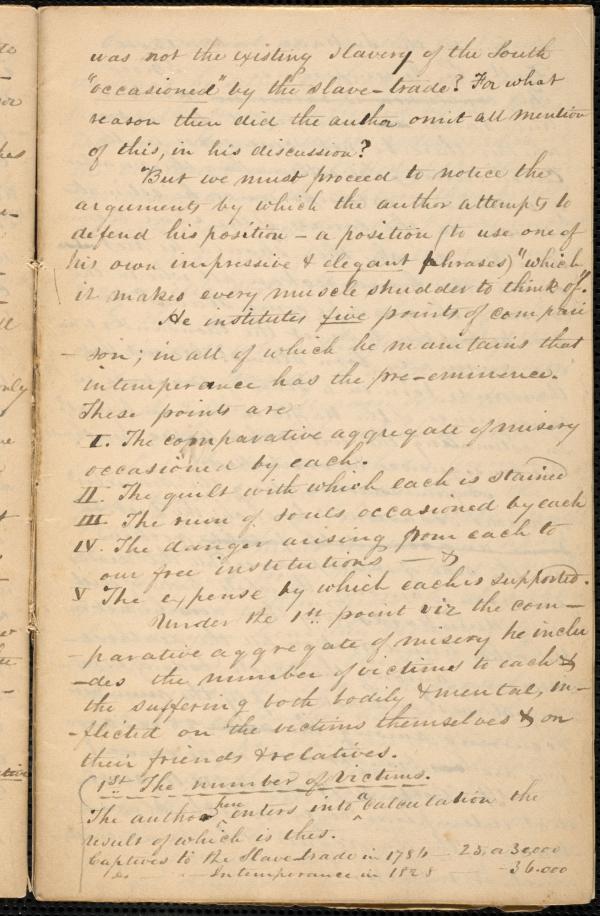 was not the existing slavery of the South
"occasioned" by the slave-trade? For what
reason then did the author omit all mention
of this, in his discussion?
But we must proceed to notice the
arguments by which the author attempts to
defend his position - a position (to use one of
his own impressive & elegant phrases) "which
it makes every muscle shudder to think of".
He institutes five points of compari
- son; in all of which he maintains that
intemperance has the pre-eminence.
These points are
I. The comparative aggregate of misery
occasioned by each.
II. The guilt with which each is stained
III. The ruin of souls occasioned by each
IV. The danger arising from each to
our free institutions - &
V The expense by which each is supported.
Under the 1st point viz the com-
- parative aggregate of misery he inclu
- des the number of victims to each &
the suffering both bodily & mental, in-
- flicted on the victims themselves & on
their friends & relatives.
1st The number of victims.
The author here enters into a calculation the
result of which is this.
Captives to the Slave trade in 1786 - 25, a 30,000
do Intemperance in 1828 - 36.000